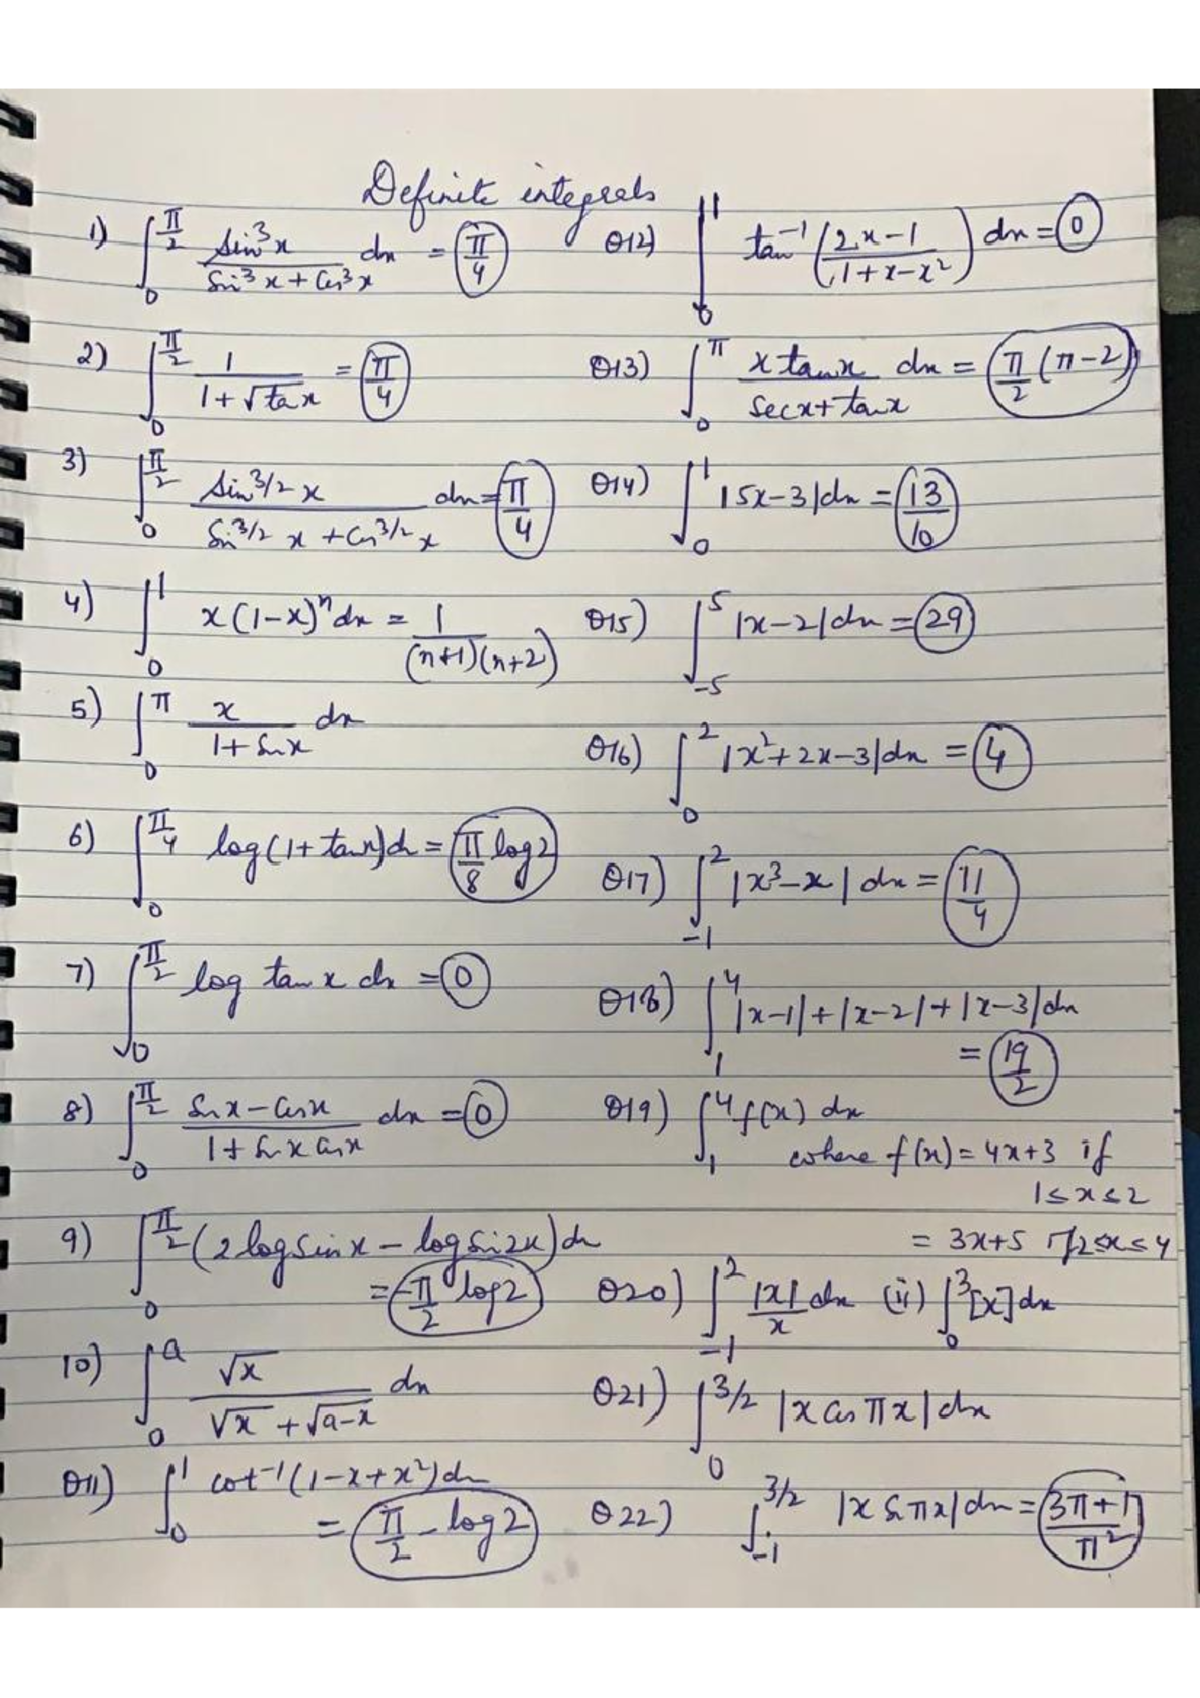 Definite integrals
1) ∫₀^{π/2} sin³x / (sin³x + cos³x) dx = π/4
2) ∫₀^{π/2} 1 / (1+√tanx) = π/4
3) ∫₀^{π/2} sin^{3/2} x / (sin^{3/2} x + cos^{3/2} x) dx = π/4
4) ∫₀^1 x(1-x)ⁿ dx = 1 / ((n+1)(n+2))
5) ∫₀^π x / (1+sinx) dx
6) ∫₀^{π/4} log(1+tanx)dx = π/8 log2
7) ∫₀^{π/2} log tanx dx = 0
8) ∫₀^{π/2} (sinx-cosx) / (1+sinx cosx) dx = 0
9) ∫₀^{π/2} (2logsinx - logsin2x)dx
= -π/2 log2
10) ∫₀^a √x / (√x + √a-x) dx
Q11) ∫₀^1 cot⁻¹(1-x+x²)dx
= π/2 - log2
Q12) ∫₀^1 tan⁻¹((2x-1) / (1+x-x²)) dx = 0
Q13) ∫₀^π x tanx / (secx+tanx) dx = π/2 (π-2)
Q14) ∫₀^1 |5x-3|dx = 13/10
Q15) ∫₋₅^5 |x-2|dx = 29
Q16) ∫₀^2 |x²+2x-3|dx = 4
Q17) ∫₋₁^2 |x³-x| dx = 11/4
Q18) ∫₁^4 |x-1|+|x-2|+|x-3|dx
= 19/2
Q19) ∫₁^4 f(x) dx
where f(x) = 4x+3 if
1≤x≤2
= 3x+5 if 2≤x≤4
Q20) ∫₋₁^2 |x|/x dx (ii) ∫₀^3 [x]dx
Q21) ∫₀^{3/2} |x cos πx|dx
Q22) ∫₋₁^{3/2} |x sin πx|dx = (3π+1)/π²